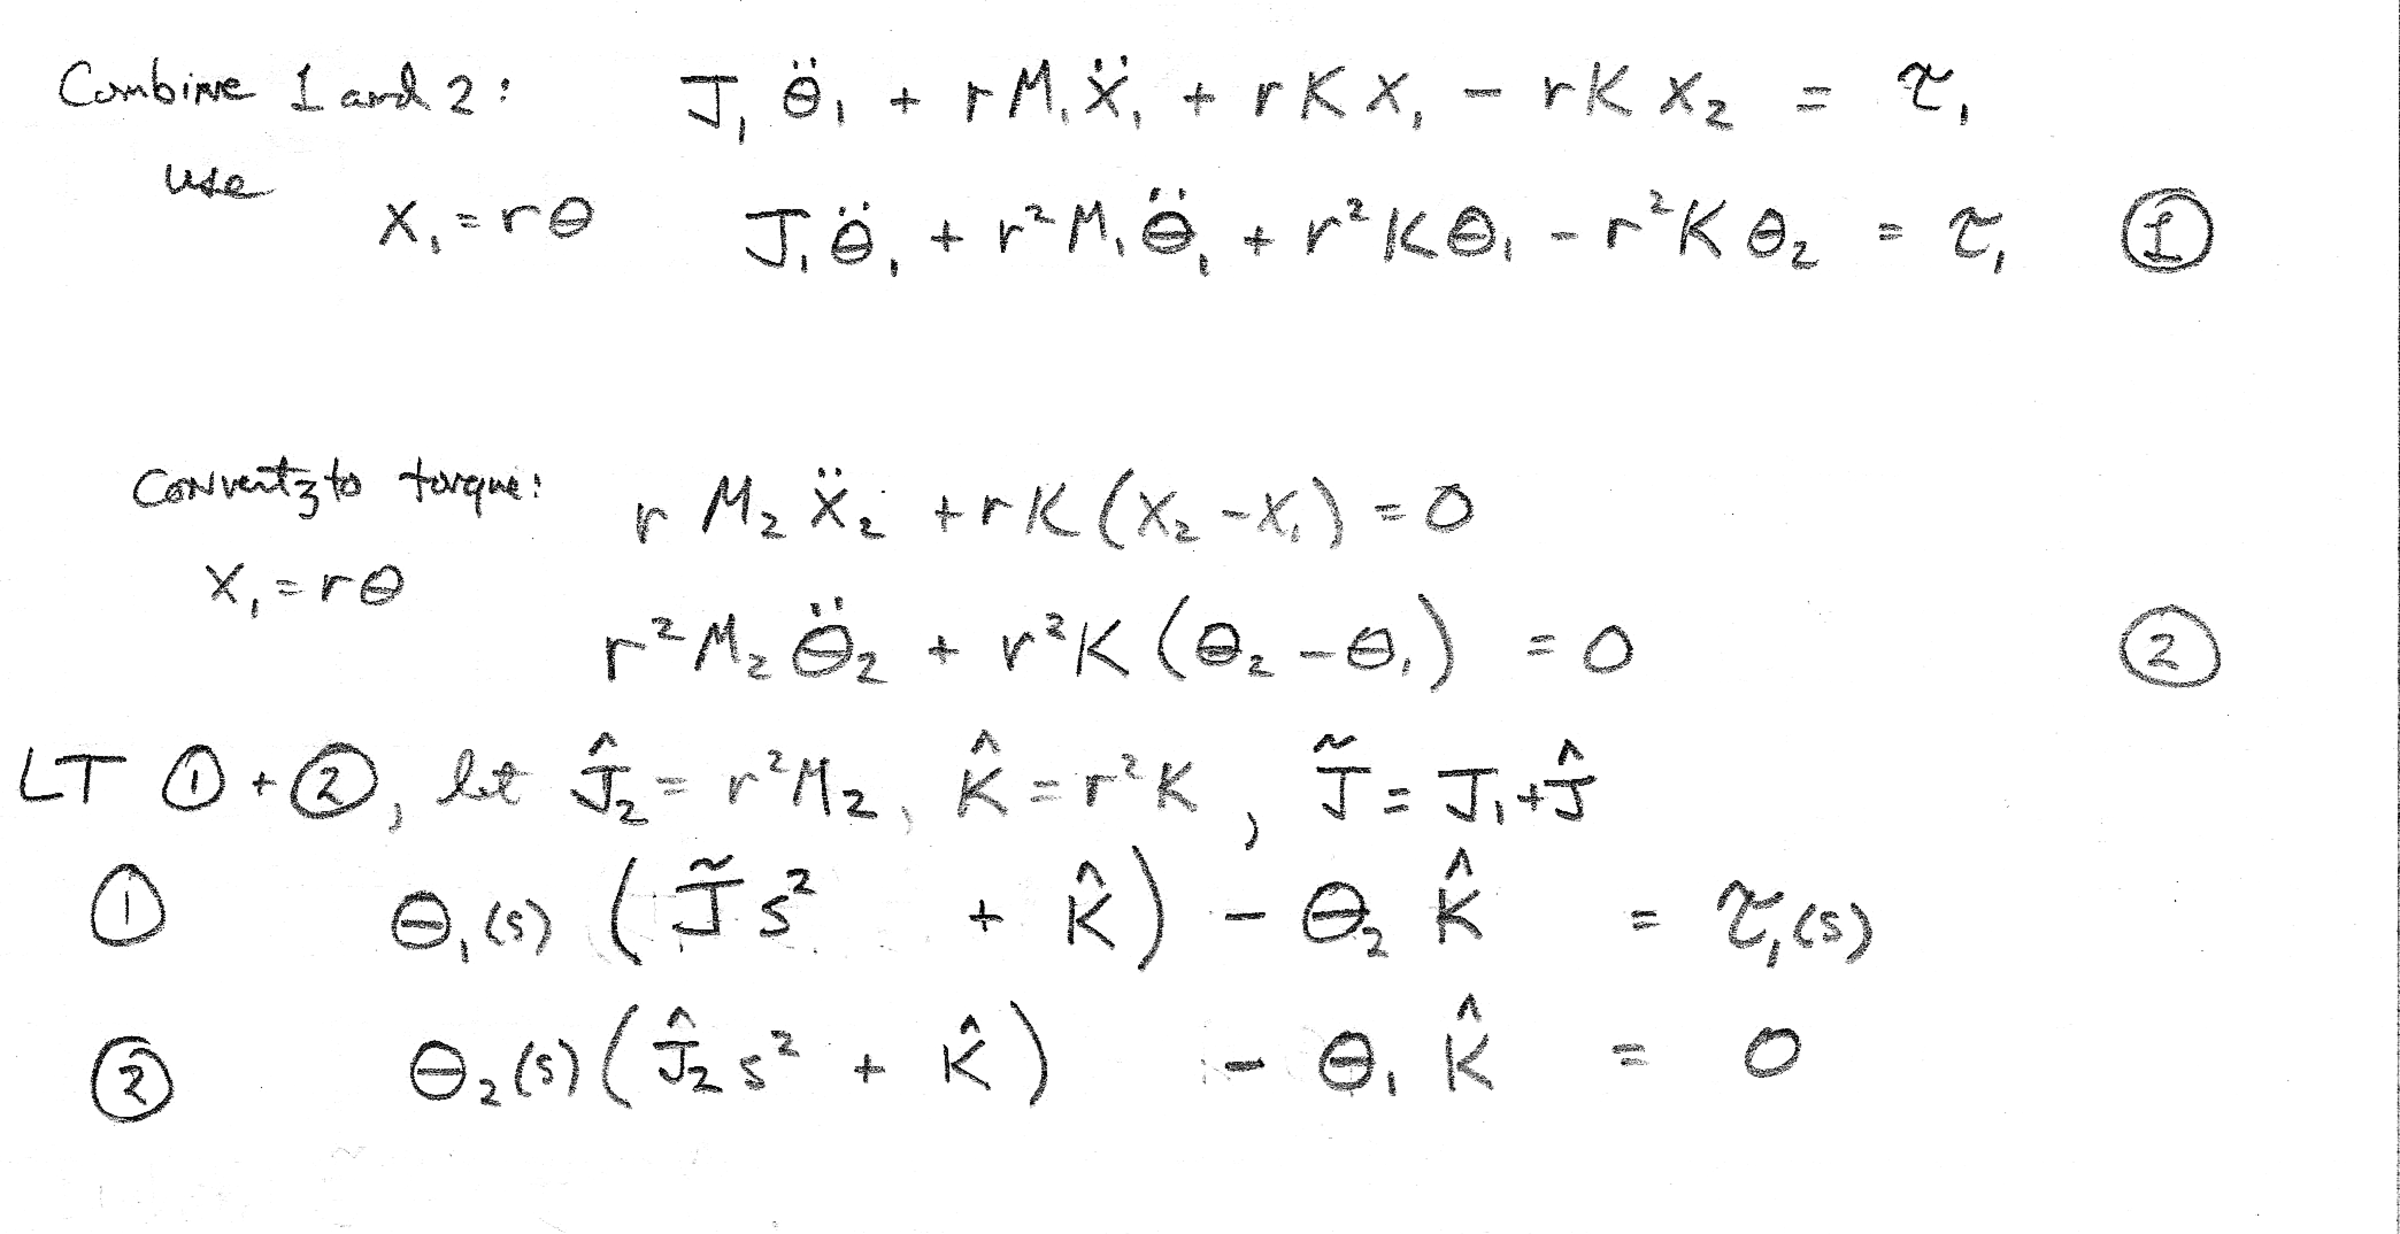 Combine 1 and 2: J₁ θ̈₁ + r M₁ ẍ₁ + r K x₁ − r K x₂ = τ₁
use
x₁ = rθ J₁ θ̈₁ + r² M₁ θ̈₁ + r² K θ₁ − r² K θ₂ = τ₁ ①
Convert 3 to torque: r M₂ ẍ₂ + r K (x₂ − x₁) = 0
x₁ = rθ
r² M₂ θ̈₂ + r² K (θ₂ − θ₁) = 0 ②
LT ① + ②, let Ĵ₂ = r² M₂, K̂ = r² K, J̃ = J₁ + Ĵ
① θ₁(s) (J̃ s² + K̂) − θ₂ K̂ = τ₁(s)
② θ₂(s) (Ĵ₂ s² + K̂) − θ₁ K̂ = 0